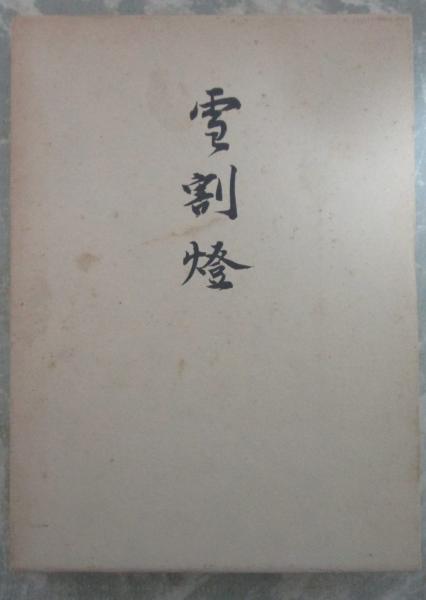 雪割燈